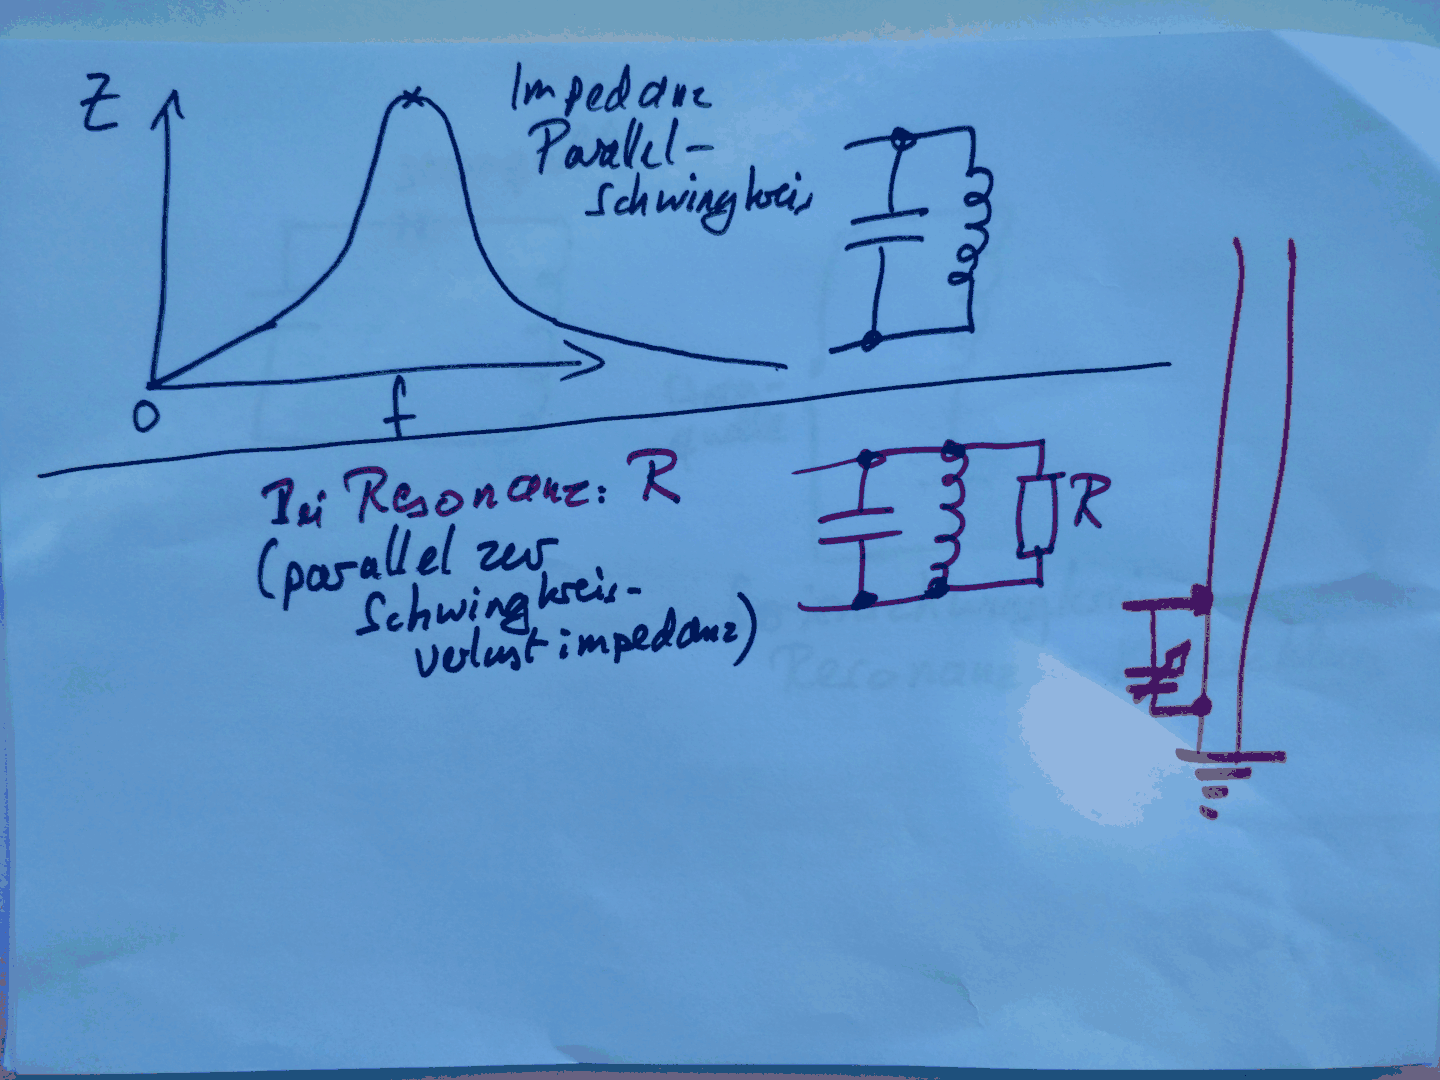 Z
Impedanz
Parallel-
schwingkreis
0
f
Bei Resonanz: R
(parallel zur
Schwingkreis-
verlustimpedanz)
R